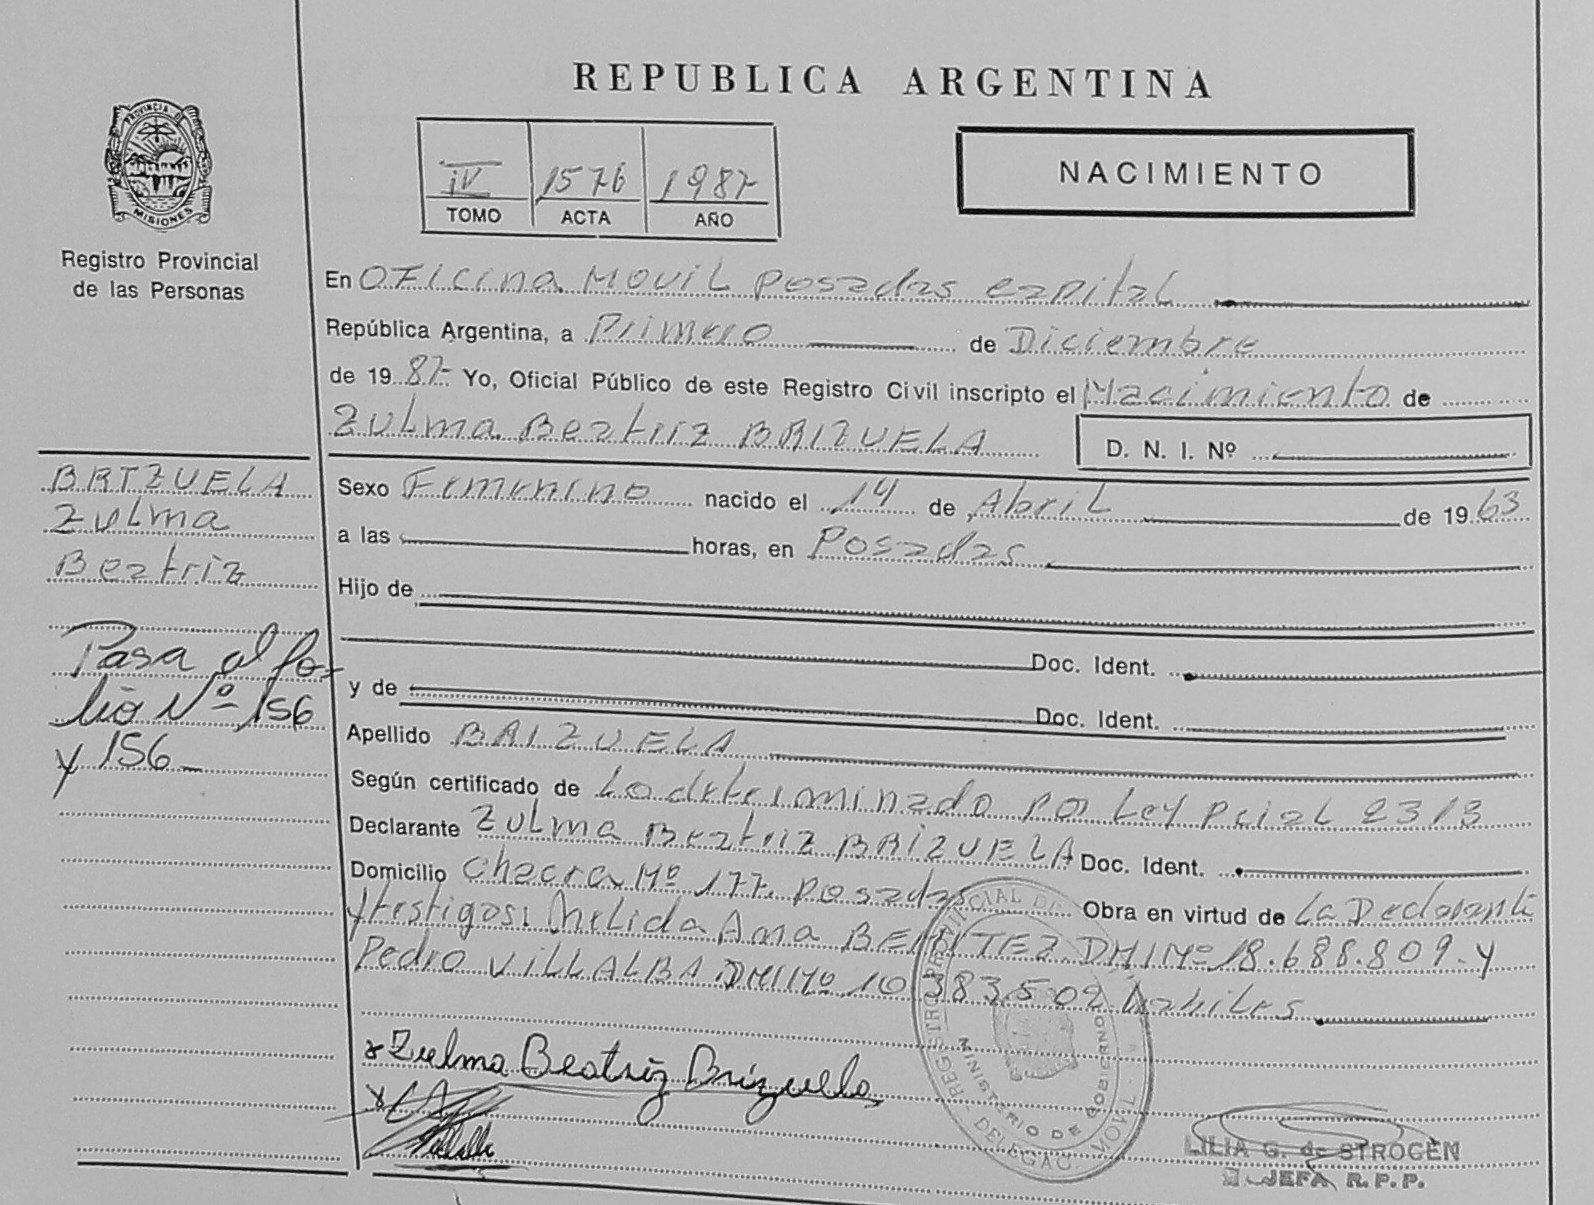 REPUBLICA ARGENTINA
PROVINCIA DE
MISIONES
Registro Provincial
de las Personas
IV 1576 1987
TOMO ACTA AÑO
NACIMIENTO
En OFicina MOVIL Posadas capital
República Argentina, a Primero de Diciembre
de 19 87 Yo, Oficial Público de este Registro Civil inscripto el Nacimiento de
Zulma Beatriz BRIZUELA
D. N. I. Nº
BRIZUELA
Zulma
Beatriz
Pasa al fo-
lio Nº 156
y 156
Sexo Femenino nacido el 14 de Abril de 19 63
a las horas, en Posadas
Hijo de
Doc. Ident.
y de
Doc. Ident.
Apellido BRIZUELA
Según certificado de Lo determinado por Ley Pcial 2313
Declarante Zulma Beatriz BRIZUELA Doc. Ident.
Domicilio Chacra Nº 177. Posadas Obra en virtud de La Declarante
y testigos: Nelida Ana BENITEZ DNI Nº 18.688.809 y
Pedro VILLALBA DNI Nº 10 383.502 habiles
Zulma Beatriz Brizuela
REGISTRO PROVINCIAL DE
MINISTERIO DE GOBIERNO
DELEGAC. MOVIL
LILIA G. de STROGEN
JEFA R.P.P.